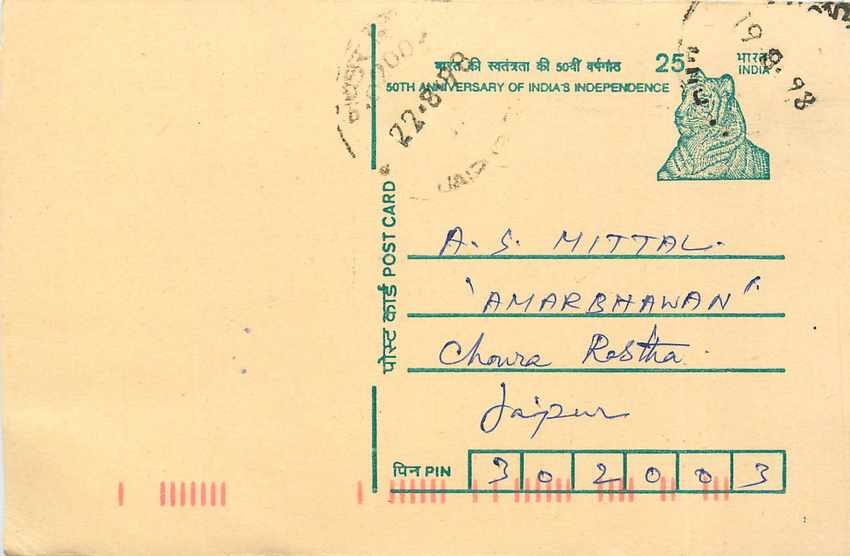 भारत की स्वतंत्रता की 50वीं वर्षगांठ
50TH ANNIVERSARY OF INDIA'S INDEPENDENCE
25
भारत
INDIA
22-8-98
19 8. 98
पोस्ट कार्ड POST CARD
A. S. MITTAL.
'AMARBHAWAN'
Choura Rastha.
Jaipur
पिन PIN 302003